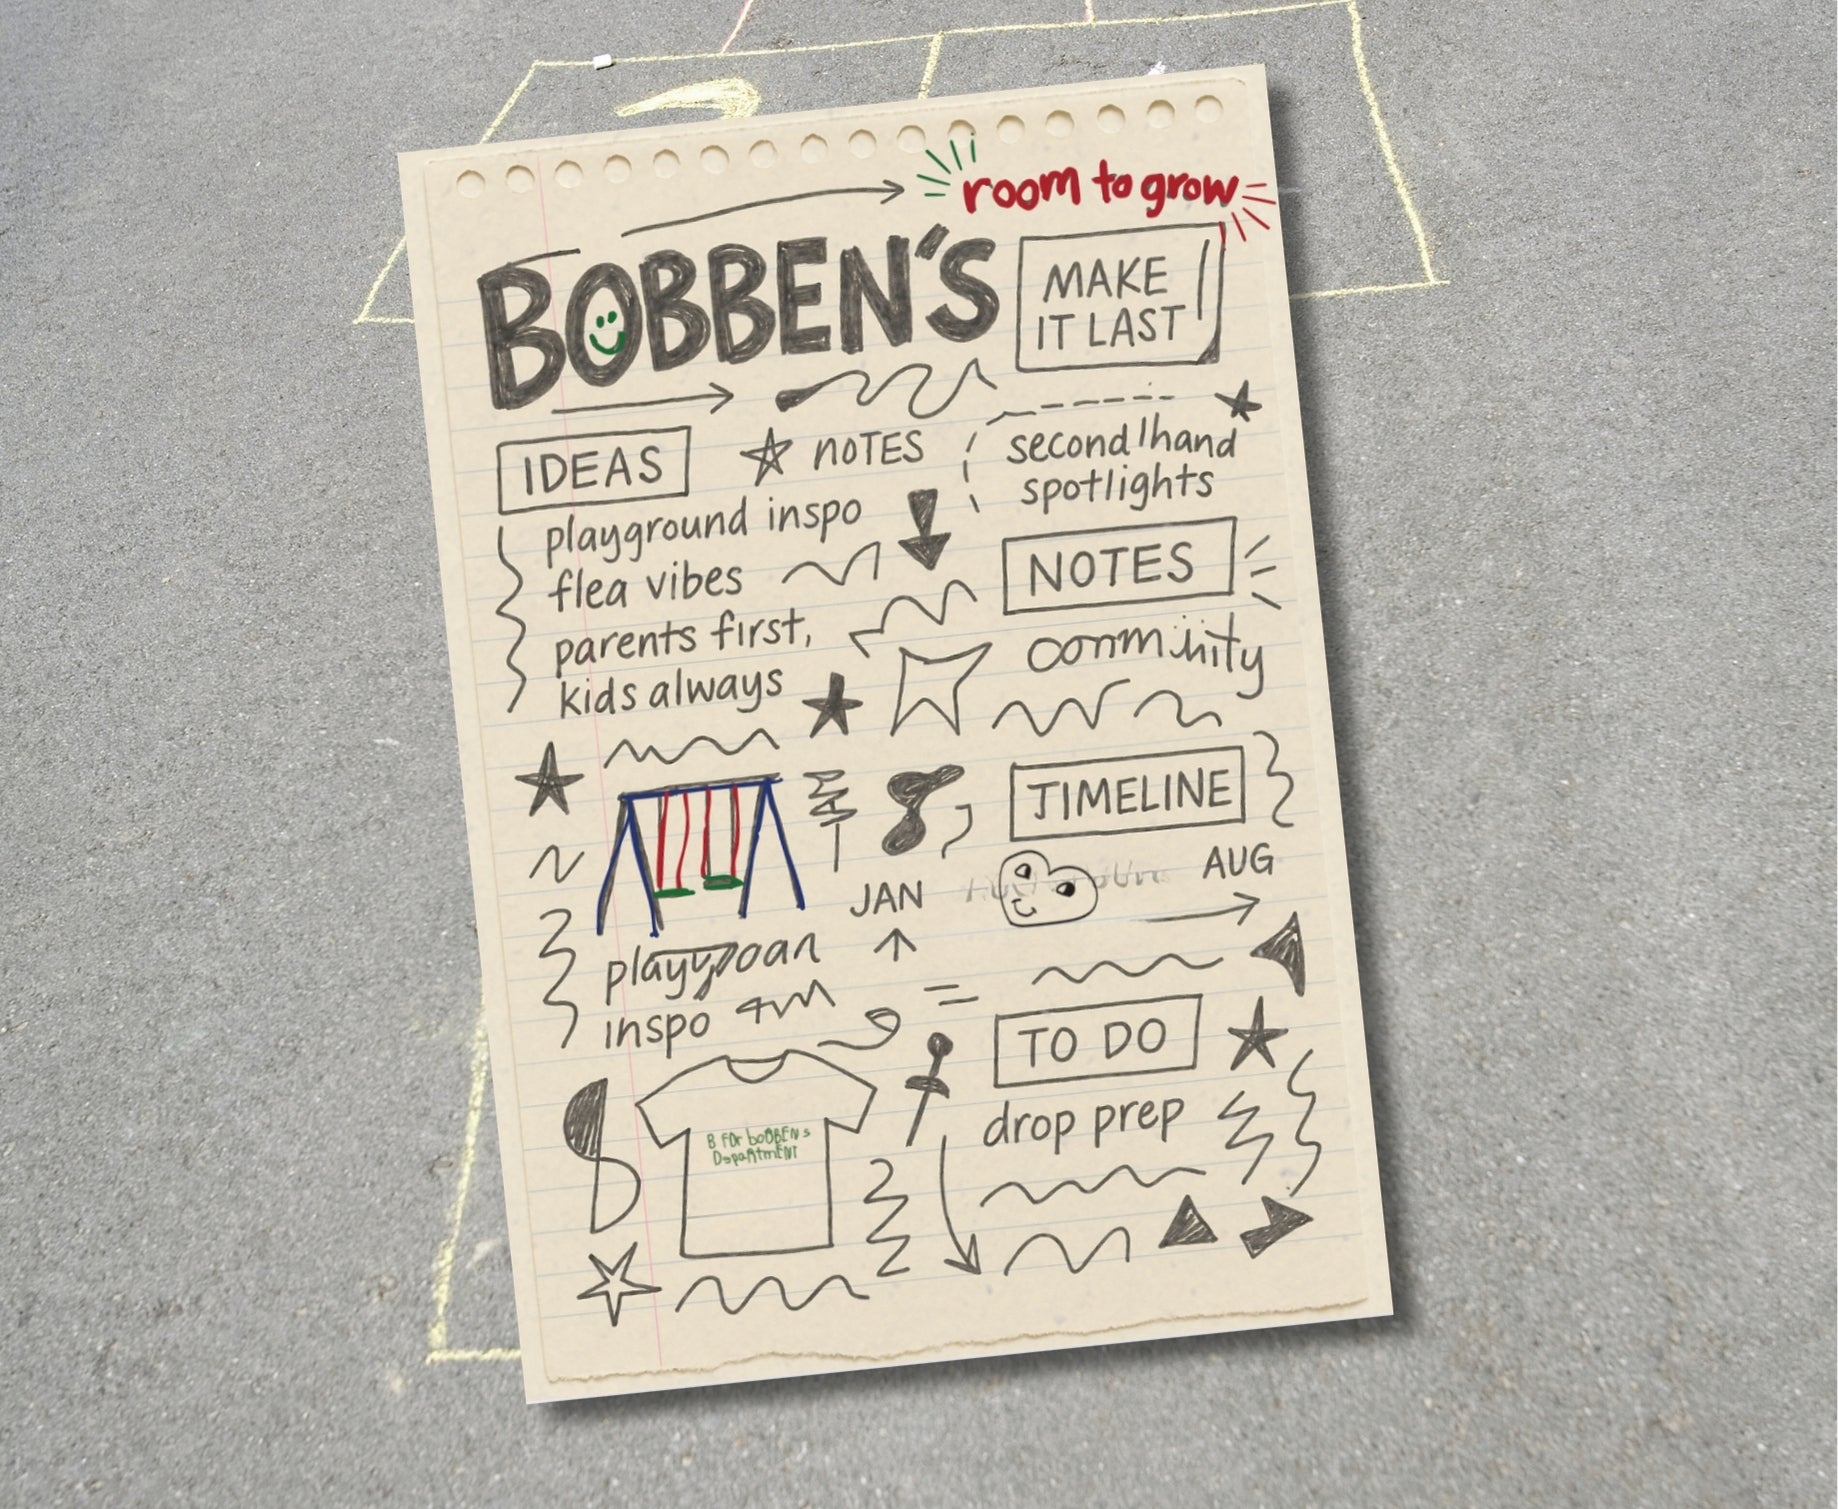 room to grow
BOBBEN'S
MAKE
IT LAST
IDEAS
NOTES
second hand
spotlights
playground inspo
flea vibes
parents first,
kids always
NOTES
TIMELINE
JAN
AUG
inspo
B FOR boBBENs
DepaRtmENT
TO DO
drop prep